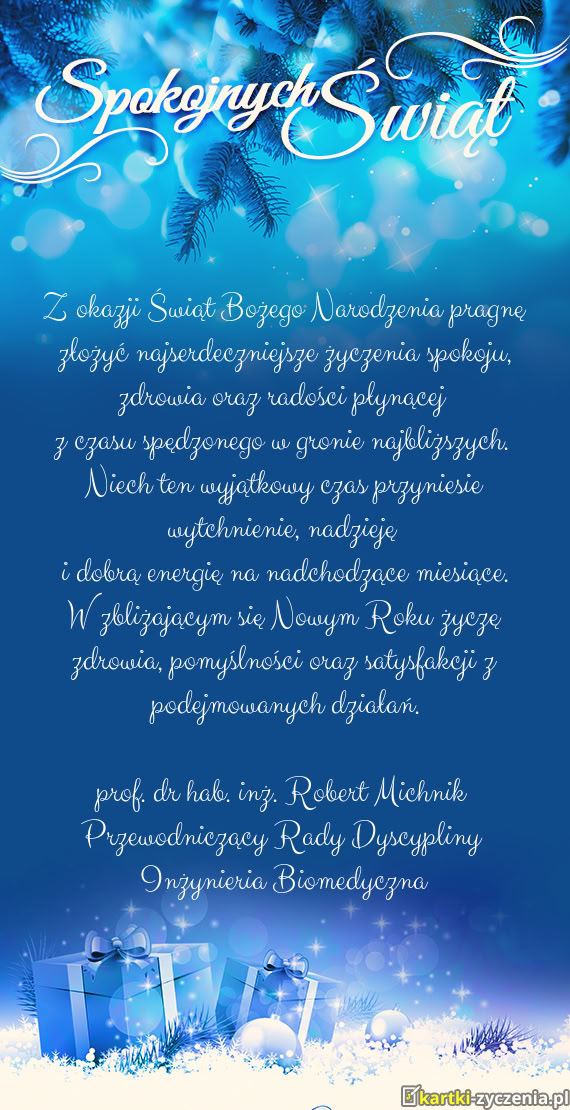 Spokojnych Świąt
Z okazji Świąt Bożego Narodzenia pragnę
złożyć najserdeczniejsze życzenia spokoju,
zdrowia oraz radości płynącej
z czasu spędzonego w gronie najbliższych.
Niech ten wyjątkowy czas przyniesie
wytchnienie, nadzieję
i dobrą energię na nadchodzące miesiące.
W zbliżającym się Nowym Roku życzę
zdrowia, pomyślności oraz satysfakcji z
podejmowanych działań.
prof. dr hab. inż. Robert Michnik
Przewodniczący Rady Dyscypliny
Inżynieria Biomedyczna
kartki-zyczenia.pl